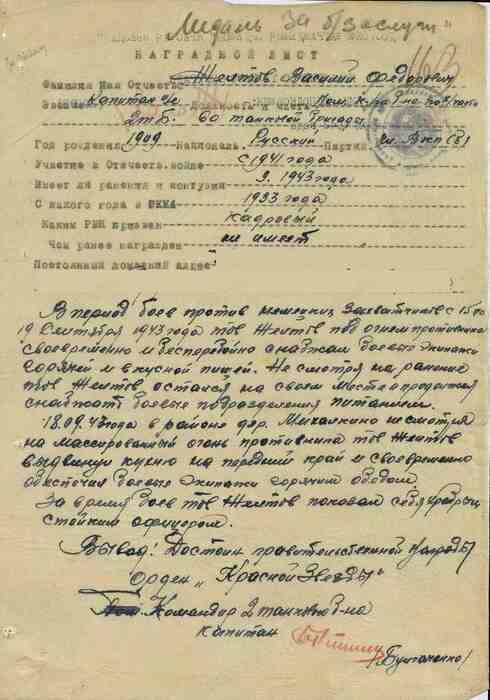 Медаль За б/заслуги"
НАГРАДНОЙ ЛИСТ
Фамилия Имя Отчество Желтов Василий Федорович
Звание Капитан Должность и часть
2 тб. 60 танковой бригады
Год рождения 1909 Националь. Русский Партийн. Чл. ВКП(б)
Участие в Отечеств. войне с 1941 года
Имеет ли ранения и контузии 9. 1943 года
С какого года в РККА 1933 года
Каким РВК призван кадровый
Чем ранее награжден не имеет
Постоянный домашний адрес
В период боев против немецких захватчиков с 15 по
19 сентября 1943 года тов Желтов под огнем противника
своевременно и бесперебойно снабжал боевые экипажи
горячей и вкусной пищей. Не смотря на ранение
тов Желтов остался на своем месте продолжая
снабжать боевые подразделения питанием.
18.09.43 года в районе дер. Михалкино несмотря
на массированный огонь противника тов Желтов
выдвинул кухню на передний край и своевременно
обеспечил боевые экипажи горячим обедом.
За время боев тов Желтов показал себя храбрым
стойким офицером.
Вывод: Достоин правительственной награды
Орден „Красной Звезды"
Командир 2 танкового б-на
капитан